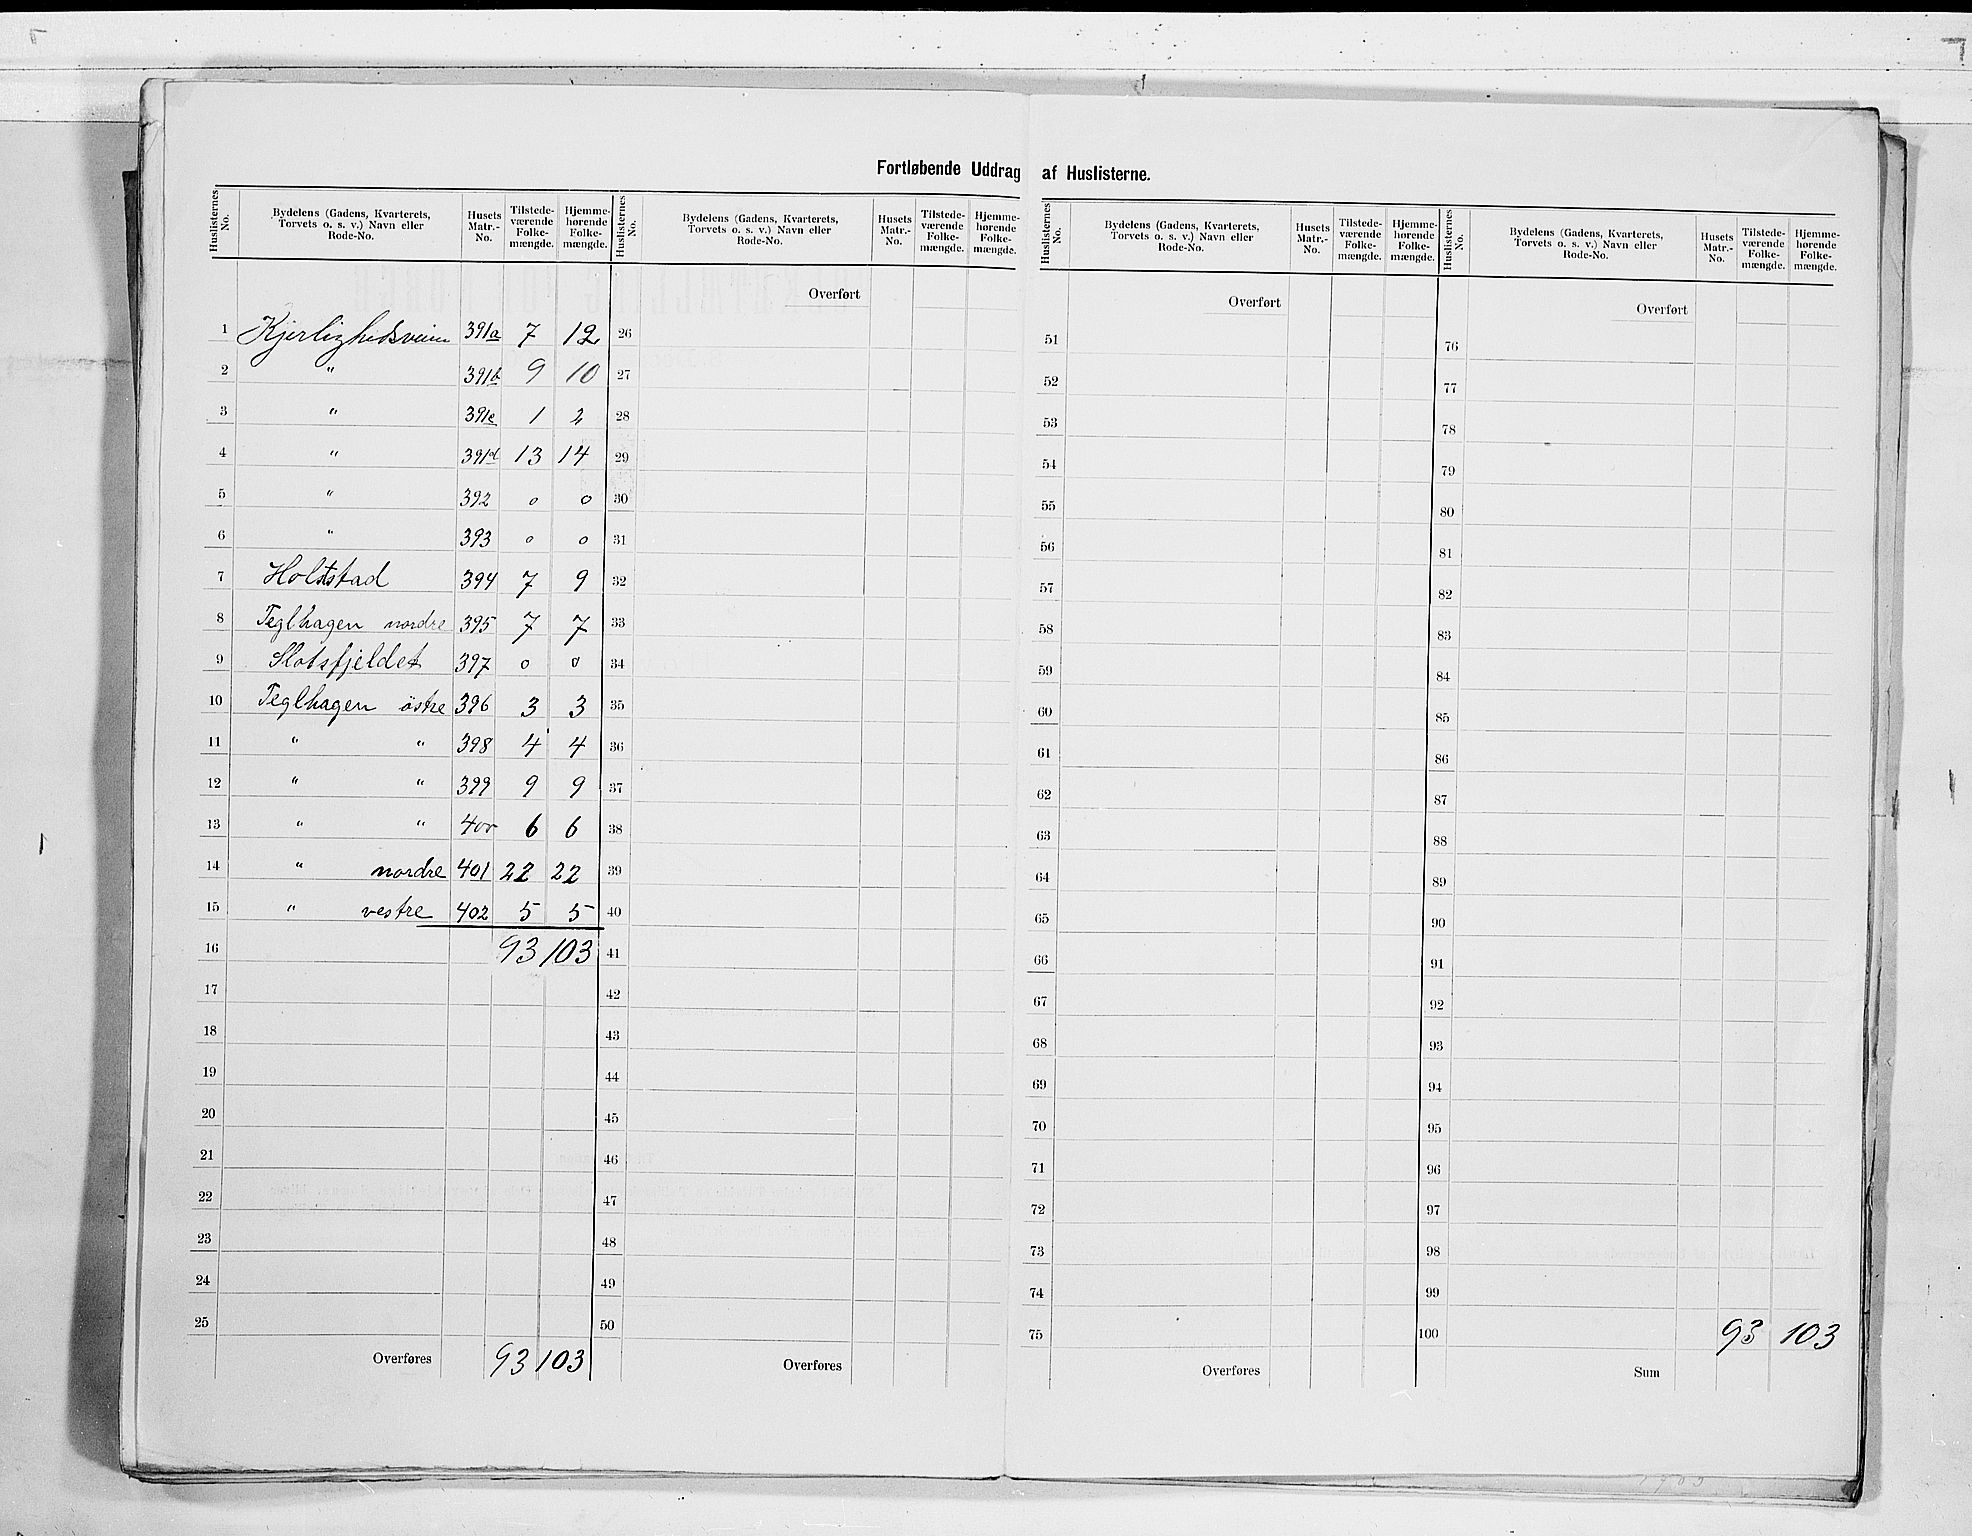 Fortløbende Uddrag af Huslisterne.
Huslisternes No. | Bydelens (Gadens, Kvarterets, Torvets o. s. v.) Navn eller Rode-No. | Husets Matr.-No. | Tilstedeværende Folkemængde. | Hjemmehørende Folkemængde. | Huslisternes No. | Bydelens (Gadens, Kvarterets, Torvets o. s. v.) Navn eller Rode-No. | Husets Matr.-No. | Tilstedeværende Folkemængde. | Hjemmehørende Folkemængde. | Huslisternes No. | Bydelens (Gadens, Kvarterets, Torvets o. s. v.) Navn eller Rode-No. | Husets Matr.-No. | Tilstedeværende Folkemængde. | Hjemmehørende Folkemængde. | Huslisternes No. | Bydelens (Gadens, Kvarterets, Torvets o. s. v.) Navn eller Rode-No. | Husets Matr.-No. | Tilstedeværende Folkemængde. | Hjemmehørende Folkemængde.
Overført Overført Overført
1 Kjerlighedsveien 391a 7 12 26 51 76
2 " 391b 9 10 27 52 77
3 " 391c 1 2 28 53 78
4 " 391d 13 14 29 54 79
5 " 392 0 0 30 55 80
6 " 393 0 0 31 56 81
7 Holtstad 394 7 9 32 57 82
8 Teglhagen nordre 395 7 7 33 58 83
9 Slotsfjeldet 397 0 0 34 59 84
10 Teglhagen östre 396 3 3 35 60 85
11 " " 398 4 4 36 61 86
12 " " 399 9 9 37 62 87
13 " " 400 6 6 38 63 88
14 " nordre 401 22 22 39 64 89
15 " vestre 402 5 5 40 65 90
16 93 103 41 66 91
17 42 67 92
18 43 68 93
19 44 69 94
20 45 70 95
21 46 71 96
22 47 72 97
23 48 73 98
24 49 74 99
25 50 75 100 93 103
Overføres 93 103 Overføres Overføres Sum